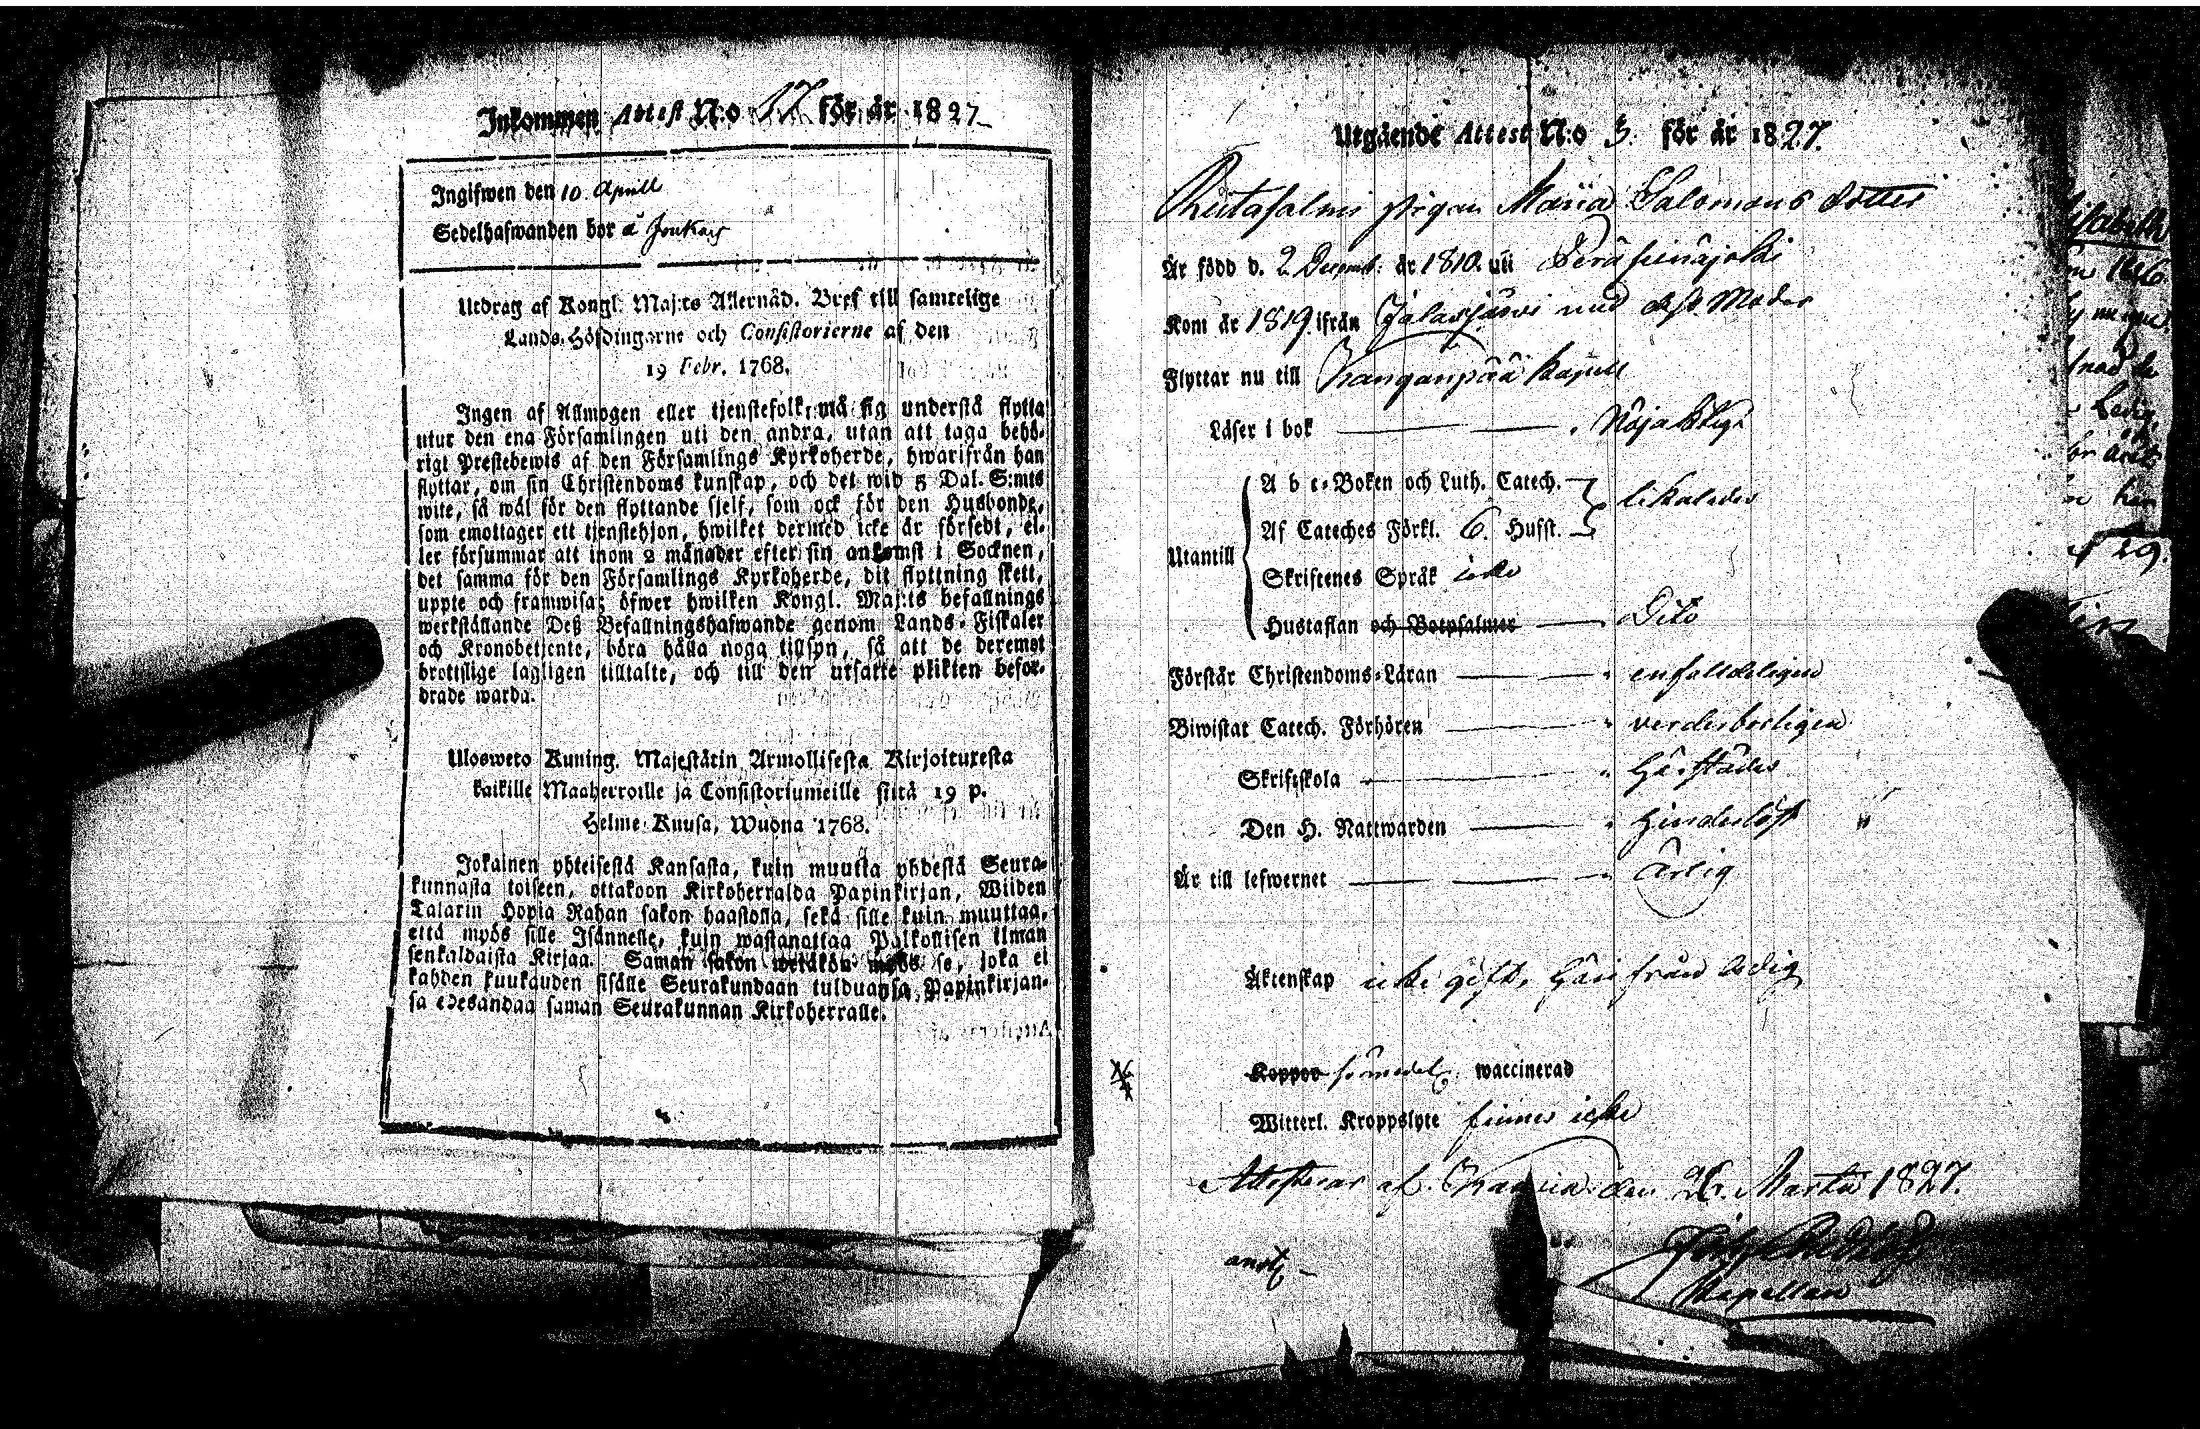 Inkommen Attest N:o 17 för år 1827
Ingifwen den 10 Aprill
Sedelhafwanden bor å Jonkars
Utdrag af Kongl. Maj:ts Allernåd. Bref till samtelige
Lands-Höfdingarne och Consistorierne af den
19 Febr. 1768.
Ingen af Allmogen eller tjenstefolk må sig understå flytta
utur den ena Församlingen uti den andra, utan att taga behö-
rigt Prestebewis af den Församlings Kyrkoherde, hwarifrån han
flyttar, om sin Christendoms kunskap, och det wid 5 Dal. S:mts
wite, så wäl för den flyttande sjelf, som ock för den Husbonde,
som emottager ett tjenstehjon, hwilket dermed icke är försedt, el-
ler försummar att inom 2 månader efter sin ankomst i Socknen,
det samma för den Församlings Kyrkoherde, dit flyttning skett,
uppte och framwisa; öfwer hwilken Kongl. Maj:ts befallnings
werkställande Deß Befallningshafwande genom Lands-Fiskaler
och Kronobetjente, böra hålla noga tillsyn, så att de deremot
brottslige lagligen tilltalte, och till den utsatte plikten befor-
drade warda.
Ulosweto Kuning. Majestätin Armollisesta Kirjoituxesta
kaikille Maaherroille ja Consistoriumeille siitä 19 p.
Helme Kuusa, Wuona 1768.
Jokainen yhteisestä Kansasta, kuin muutta yhdestä Seura-
kunnasta toiseen, ottakoon Kirkoherralda Papinkirjan, Wiiden
Talarin Hopia Rahan sakon haastolla, sekä sille kuin muuttaa,
että myös sille Isännelle, kuin wastanottaa Palkollisen ilman
senkaldaista Kirjaa. Saman sakon wetäkön myös se, joka ei
kahden kuukauden sisälle Seurakundaan tulduansa, Papinkirjan-
sa edesandaa saman Seurakunnan Kirkoherralle.
Utgående Attest N:o 3. för år 1827.
pigan Maria Salomons dotter
Är född d. 2 Decemb: år 1810. uti Peräseinäjoki
Kom år 1819. ifrån Jalasjärwi med dess Moder
Flyttar nu till Kanganpää kapell
Läser i bok Nöjaktligt
A b c-Boken och Luth. Catech.
likaledes
Af Cateches Förkl. 6. Husst.
Utantill
Skriftenes Språk icke
Hustaflan och Botpsalmer Dito
Förstår Christendoms-Läran enfalldeligen
Biwistat Catech. Förhören verderborligen
Skriftskola härstädes
Den H. Nattwarden hinderlöst
Är till lefwernet Ärlig
Äktenskap icke gift, härifrån ledig
Koppor förmodel. waccinerad
Witterl. Kroppslyte finnes icke
Attesterar af den 26. Martii 1827.
Kapellan
anot.